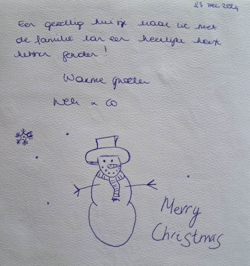 27 dec 2024
Een gezellig huisje waar we met
de familie van een heerlijke kerst
hebben
Warme groeten
& co
Merry
Christmas